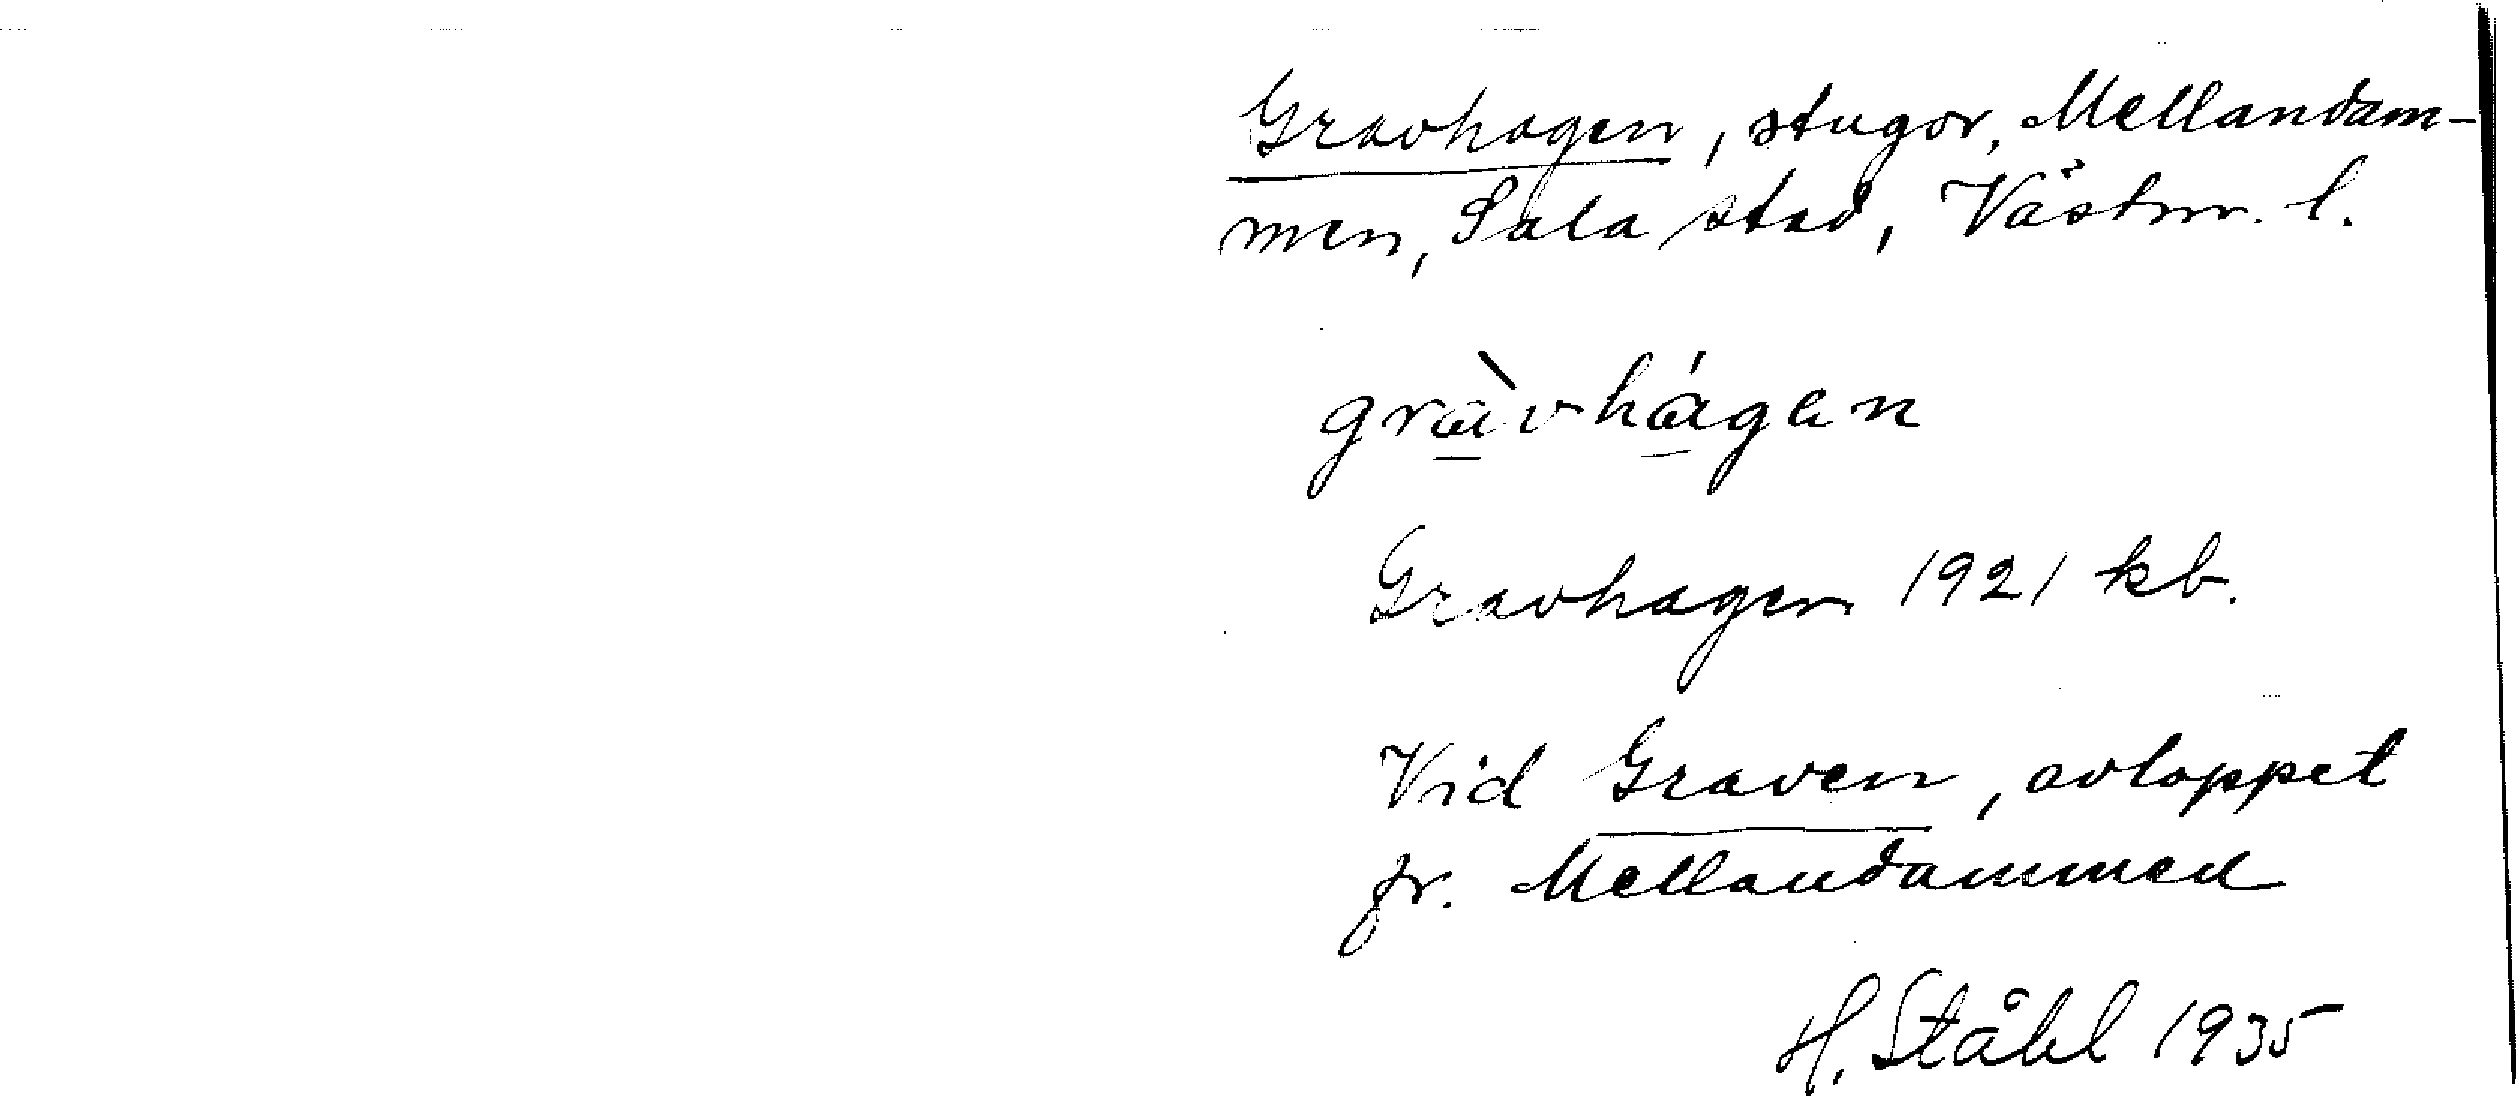 Gravhagen, stugor, Mellandam-
men, Sala stad, Västm. l.
gràvhágen
Gravhagen 1921 kb.
Vid Graven, avloppet
fr. Mellandammen
H. Ståhl 1935